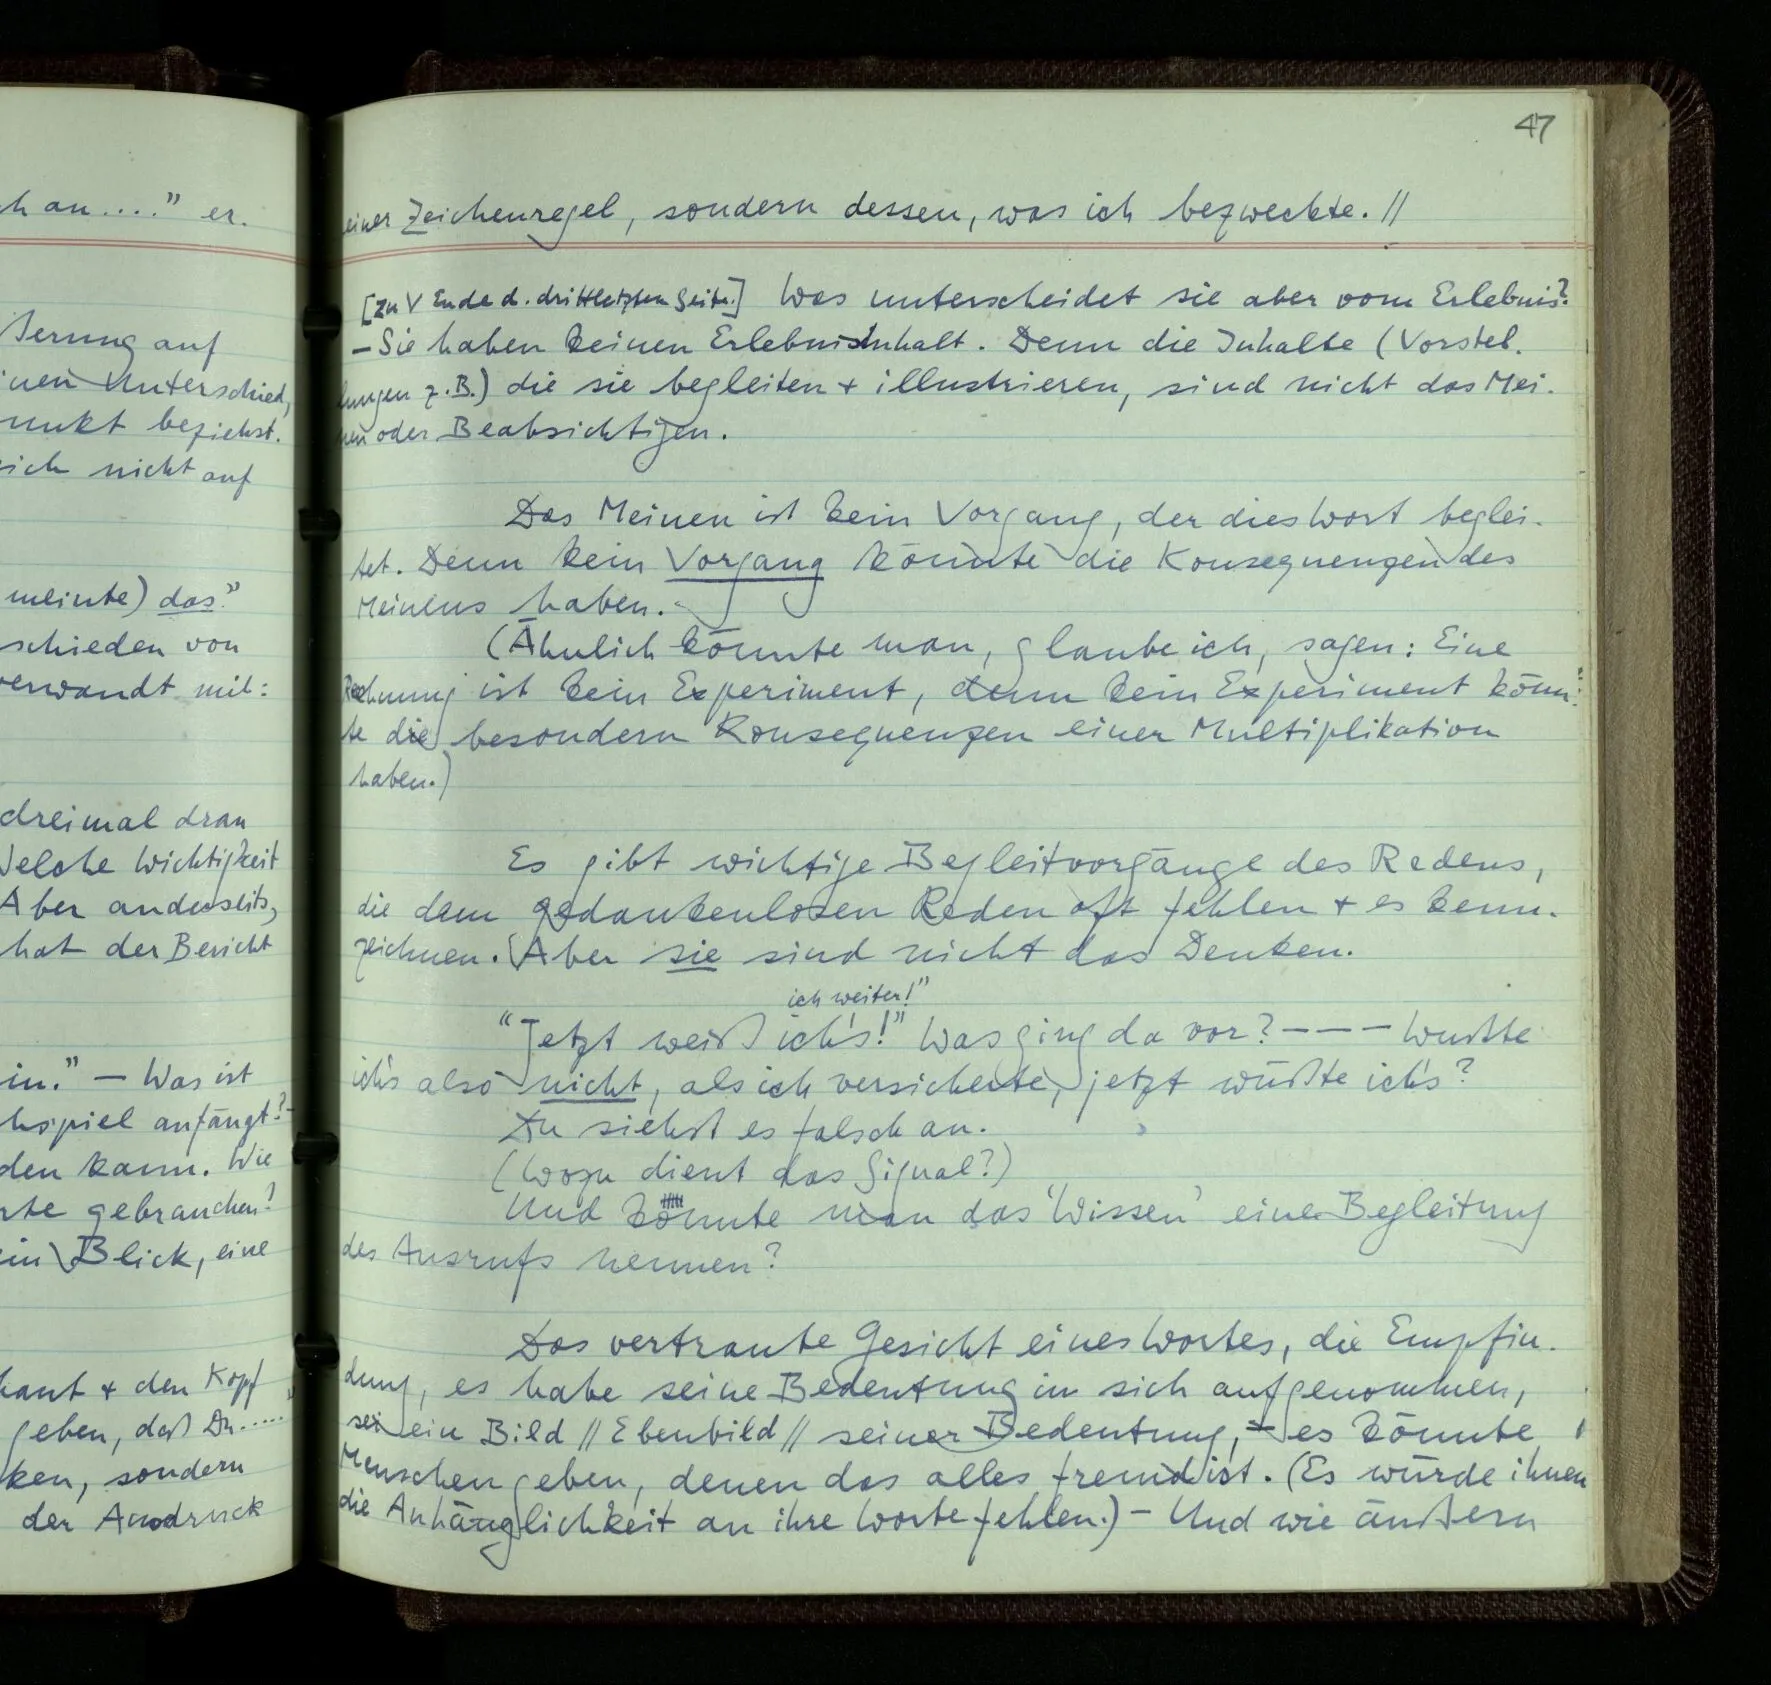 h an....." er.
ßerung auf
inen Unterschied,
unkt beziehst.
sich nicht auf
meinte) das."
schieden von
verwandt mit:
dreimal dran
Welche Wichtigkeit
Aber anderseits,
hat der Bericht
in." – Was ist
hspiel anfängt? –
den kann. Wie
rte gebrauchen?
ein Blick, eine
haut + den Kopf
geben, daß Du....."
ken, sondern
der Ausdruck
47
einer Zeichenregel, sondern dessen, was ich bezweckte. //
[Zu V Ende d. drittletzten Seite.] Was unterscheidet sie aber vom Erlebnis?
– Sie haben keinen Erlebnisinhalt. Denn die Inhalte (Vorstel-
lungen z.B.) die sie begleiten + illustrieren, sind nicht das Mei-
nen oder Beabsichtigen.
Das Meinen ist kein Vorgang, der dies Wort beglei-
tet. Denn kein Vorgang könnte die Konsequenzen des
Meinens haben.
(Ähnlich könnte man, glaube ich, sagen: Eine
Rechnung ist kein Experiment, denn kein Experiment könn-
te die besondern Konsequenzen einer Multiplikation
haben.)
Es gibt wichtige Begleitvorgänge des Redens,
die dem gedankenlosen Reden oft fehlen + es kenn-
zeichnen. Aber sie sind nicht das Denken.
ich weiter!"
"Jetzt weiß ich's!" Was ging da vor? – – – Wußte
ich's also nicht, als ich versicherte, jetzt wüßte ich's?
Du siehst es falsch an.
(Wozu dient das Signal?)
Und könnte man das 'Wissen' eine Begleitung
des Ausrufs nennen?
Das vertraute Gesicht eines Wortes, die Empfin-
dung, es habe seine Bedeutung in sich aufgenommen,
sei ein Bild // Ebenbild // seiner Bedeutung, – es könnte
Menschen geben, denen das alles fremd ist. (Es würde ihnen
die Anhänglichkeit an ihre Worte fehlen.) – Und wie äußern